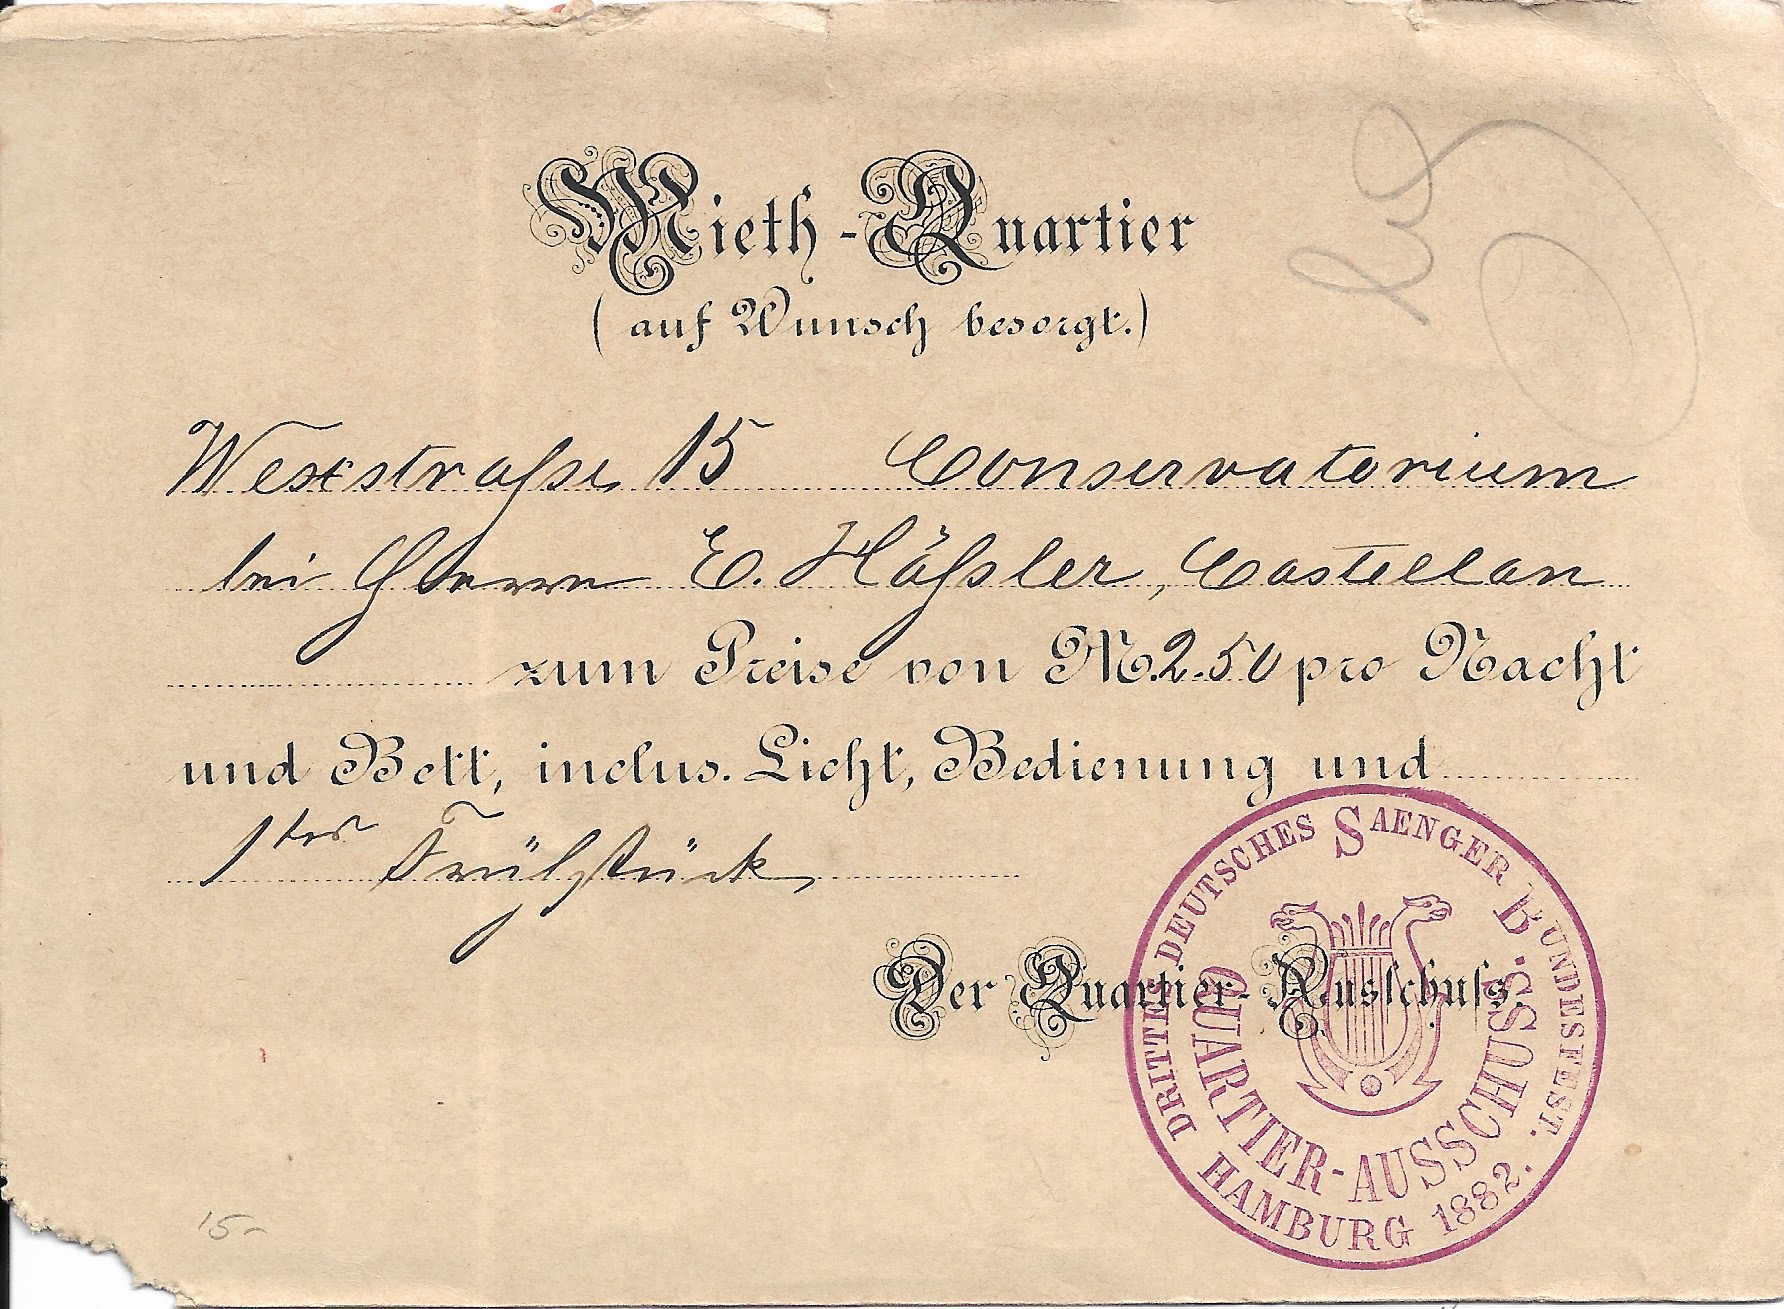 Mieth-Quartier
(auf Wunsch besorgt.)
Weststraße 15 Conservatorium
bei Herrn E. Häßler, Castellan
zum Preise von M. 2.50 pro Nacht
und Bett, inclus. Licht, Bedienung und
1tes Frühstück
Der Quartier-Ausschuss.
DRITTES DEUTSCHES SAENGER BUNDESFEST.
QUARTIER-AUSSCHUSS.
HAMBURG 1882.
15-